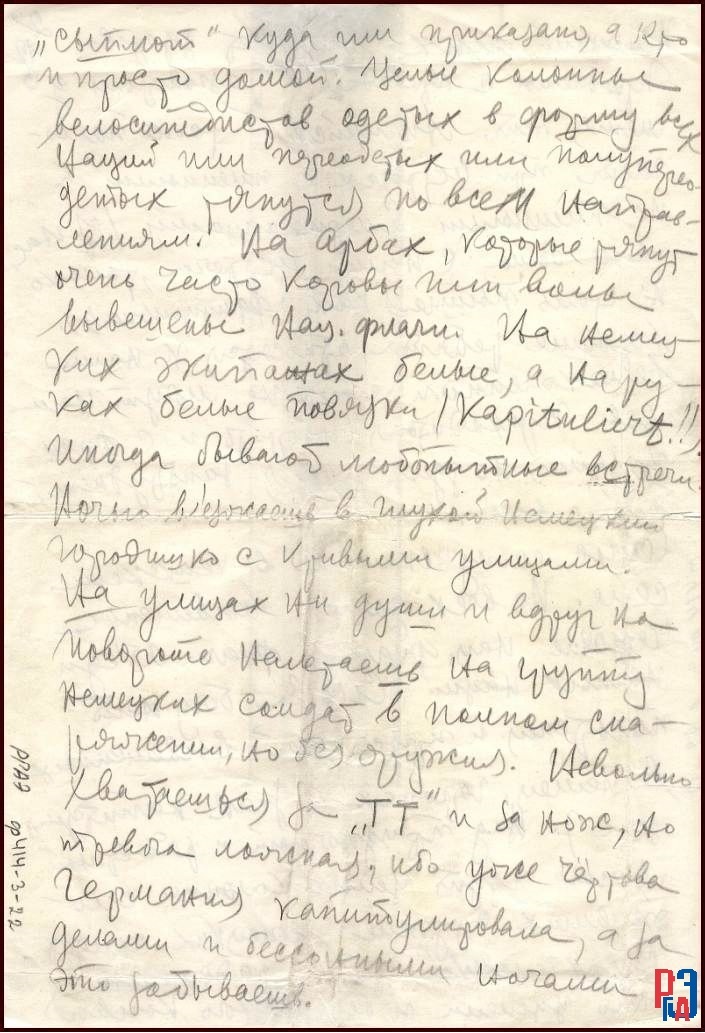 „сыпмот“ куда им приказано, а кто
и просто домой. Целые колонны
велосипедистов одетых в форму всех
Наций или переодетых или полуперео-
детых тянутся по всем направ-
лениям. На арбах, которые тянут
очень часто коровы или волы
вывешены нац. флаги. На немец-
ких экипажах белые, а на ру-
ках белые повязки (Kapituliert!!).
Иногда бывают любопытные встречи.
Ночью въезжаешь в глухой немецкий
городишко с кривыми улицами.
На улицах ни души и вдруг на
повороте налетаешь на группу
немецких солдат в полном сна-
ряжении, но без оружия. Невольно
хватаешься за „ТТ“ и за нож, но
тревога ложная, ибо уже чёртова
Германия капитулировала, а за
делами и бессонными ночами
это забываешь.
ф 414-3-22
РГАЭ